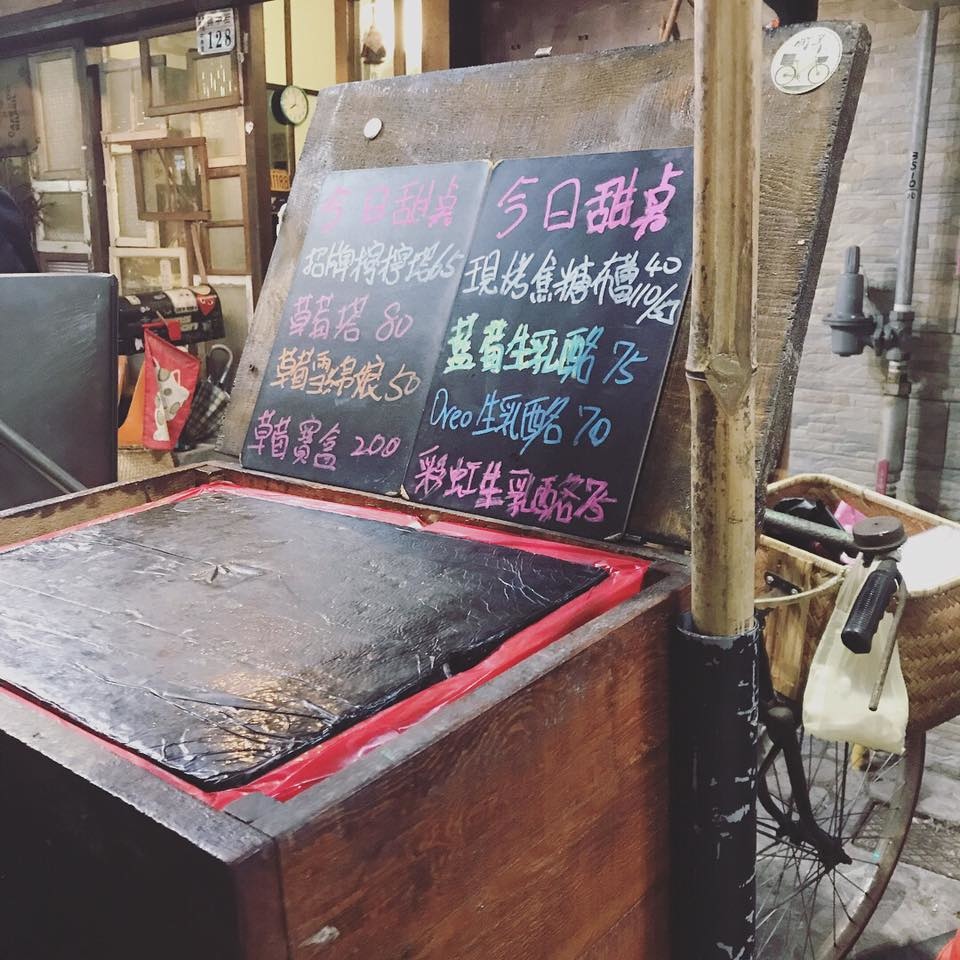 128
今日甜點
招牌檸檬塔65
草莓塔 80
草莓雪綿娘50
草莓寶盒 200
今日甜點
現烤焦糖布蕾40
110/3入
藍莓生乳酪 75
Oreo生乳酪 70
彩虹生乳酪75